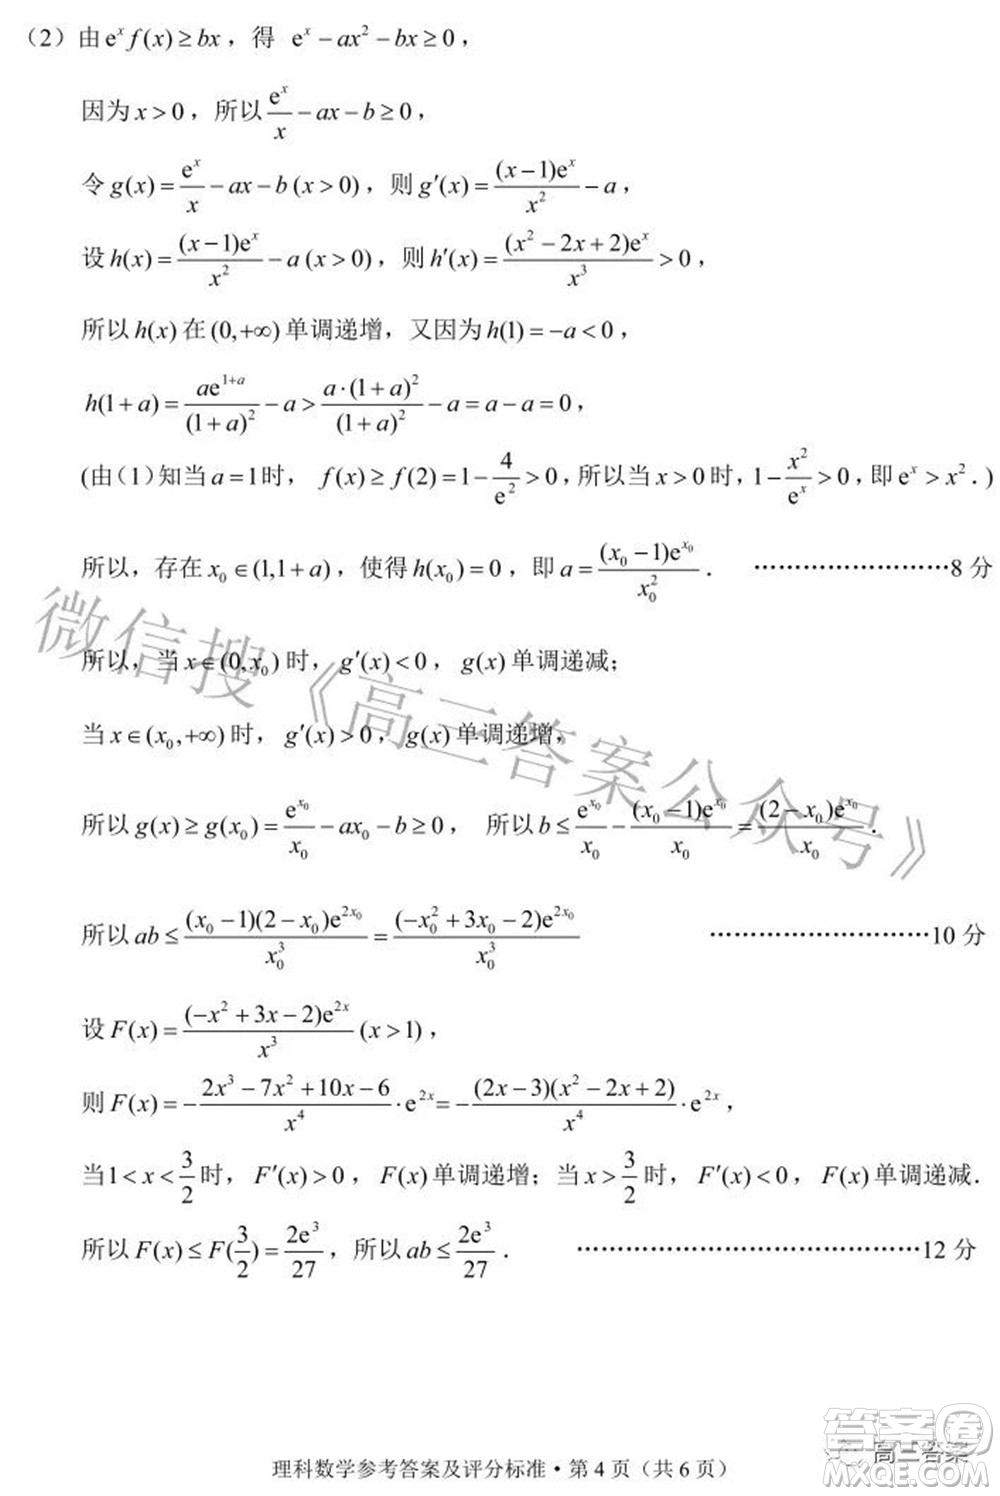 （2）由 eˣ f(x) ≥ bx，得 eˣ − ax² − bx ≥ 0，
因为 x > 0，所以 eˣ/x − ax − b ≥ 0，
令 g(x) = eˣ/x − ax − b (x > 0)，则 g′(x) = (x−1)eˣ/x² − a，
设 h(x) = (x−1)eˣ/x² − a (x > 0)，则 h′(x) = (x² − 2x + 2)eˣ/x³ > 0，
所以 h(x) 在 (0,+∞) 单调递增，又因为 h(1) = −a < 0，
h(1+a) = ae¹⁺ᵃ/(1+a)² − a > a·(1+a)²/(1+a)² − a = a − a = 0，
(由（1）知当 a = 1时， f(x) ≥ f(2) = 1 − 4/e² > 0，所以当 x > 0 时，1 − x²/eˣ > 0，即 eˣ > x²．)
所以，存在 x₀ ∈ (1,1+a)，使得 h(x₀) = 0，即 a = (x₀ −1)e^{x₀}/x₀²． ………………………8 分
所以，当 x ∈ (0, x₀) 时，g′(x) < 0，g(x) 单调递减；
当 x ∈ (x₀,+∞) 时，g′(x) > 0，g(x) 单调递增，
所以 g(x) ≥ g(x₀) = e^{x₀}/x₀ − ax₀ − b ≥ 0， 所以 b ≤ e^{x₀}/x₀ − (x₀ −1)e^{x₀}/x₀ = (2 − x₀)e^{x₀}/x₀．
所以 ab ≤ (x₀ −1)(2 − x₀)e^{2x₀}/x₀³ = (−x₀² + 3x₀ − 2)e^{2x₀}/x₀³ …………………………10 分
设 F(x) = (−x² + 3x − 2)e^{2x}/x³ (x > 1)，
则 F(x) = −(2x³ − 7x² + 10x − 6)/x⁴ · e^{2x} = −(2x − 3)(x² − 2x + 2)/x⁴ · e^{2x}，
当 1 < x < 3/2 时，F′(x) > 0，F(x) 单调递增；当 x > 3/2 时，F′(x) < 0，F(x) 单调递减．
所以 F(x) ≤ F(3/2) = 2e³/27，所以 ab ≤ 2e³/27． ……………………………………12 分
微信搜《高三答案公众号》
答案圈
高三答案
理科数学参考答案及评分标准·第 4 页（共 6 页）